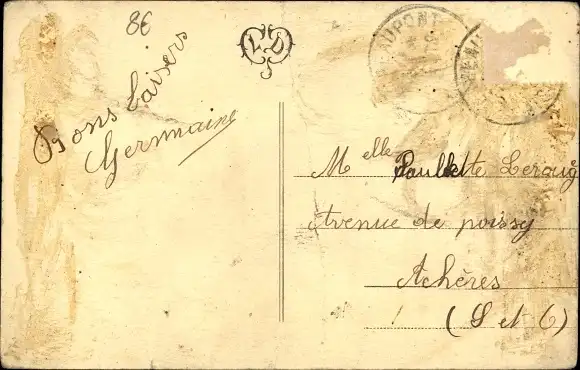 8€
Bons baisers
Germaine
L D
EAUPONT
EAU
Melle Paulette Leroug
Avenue de poissy
Achères
(S et O)